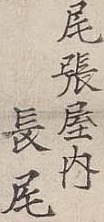 尾張屋内
長尾